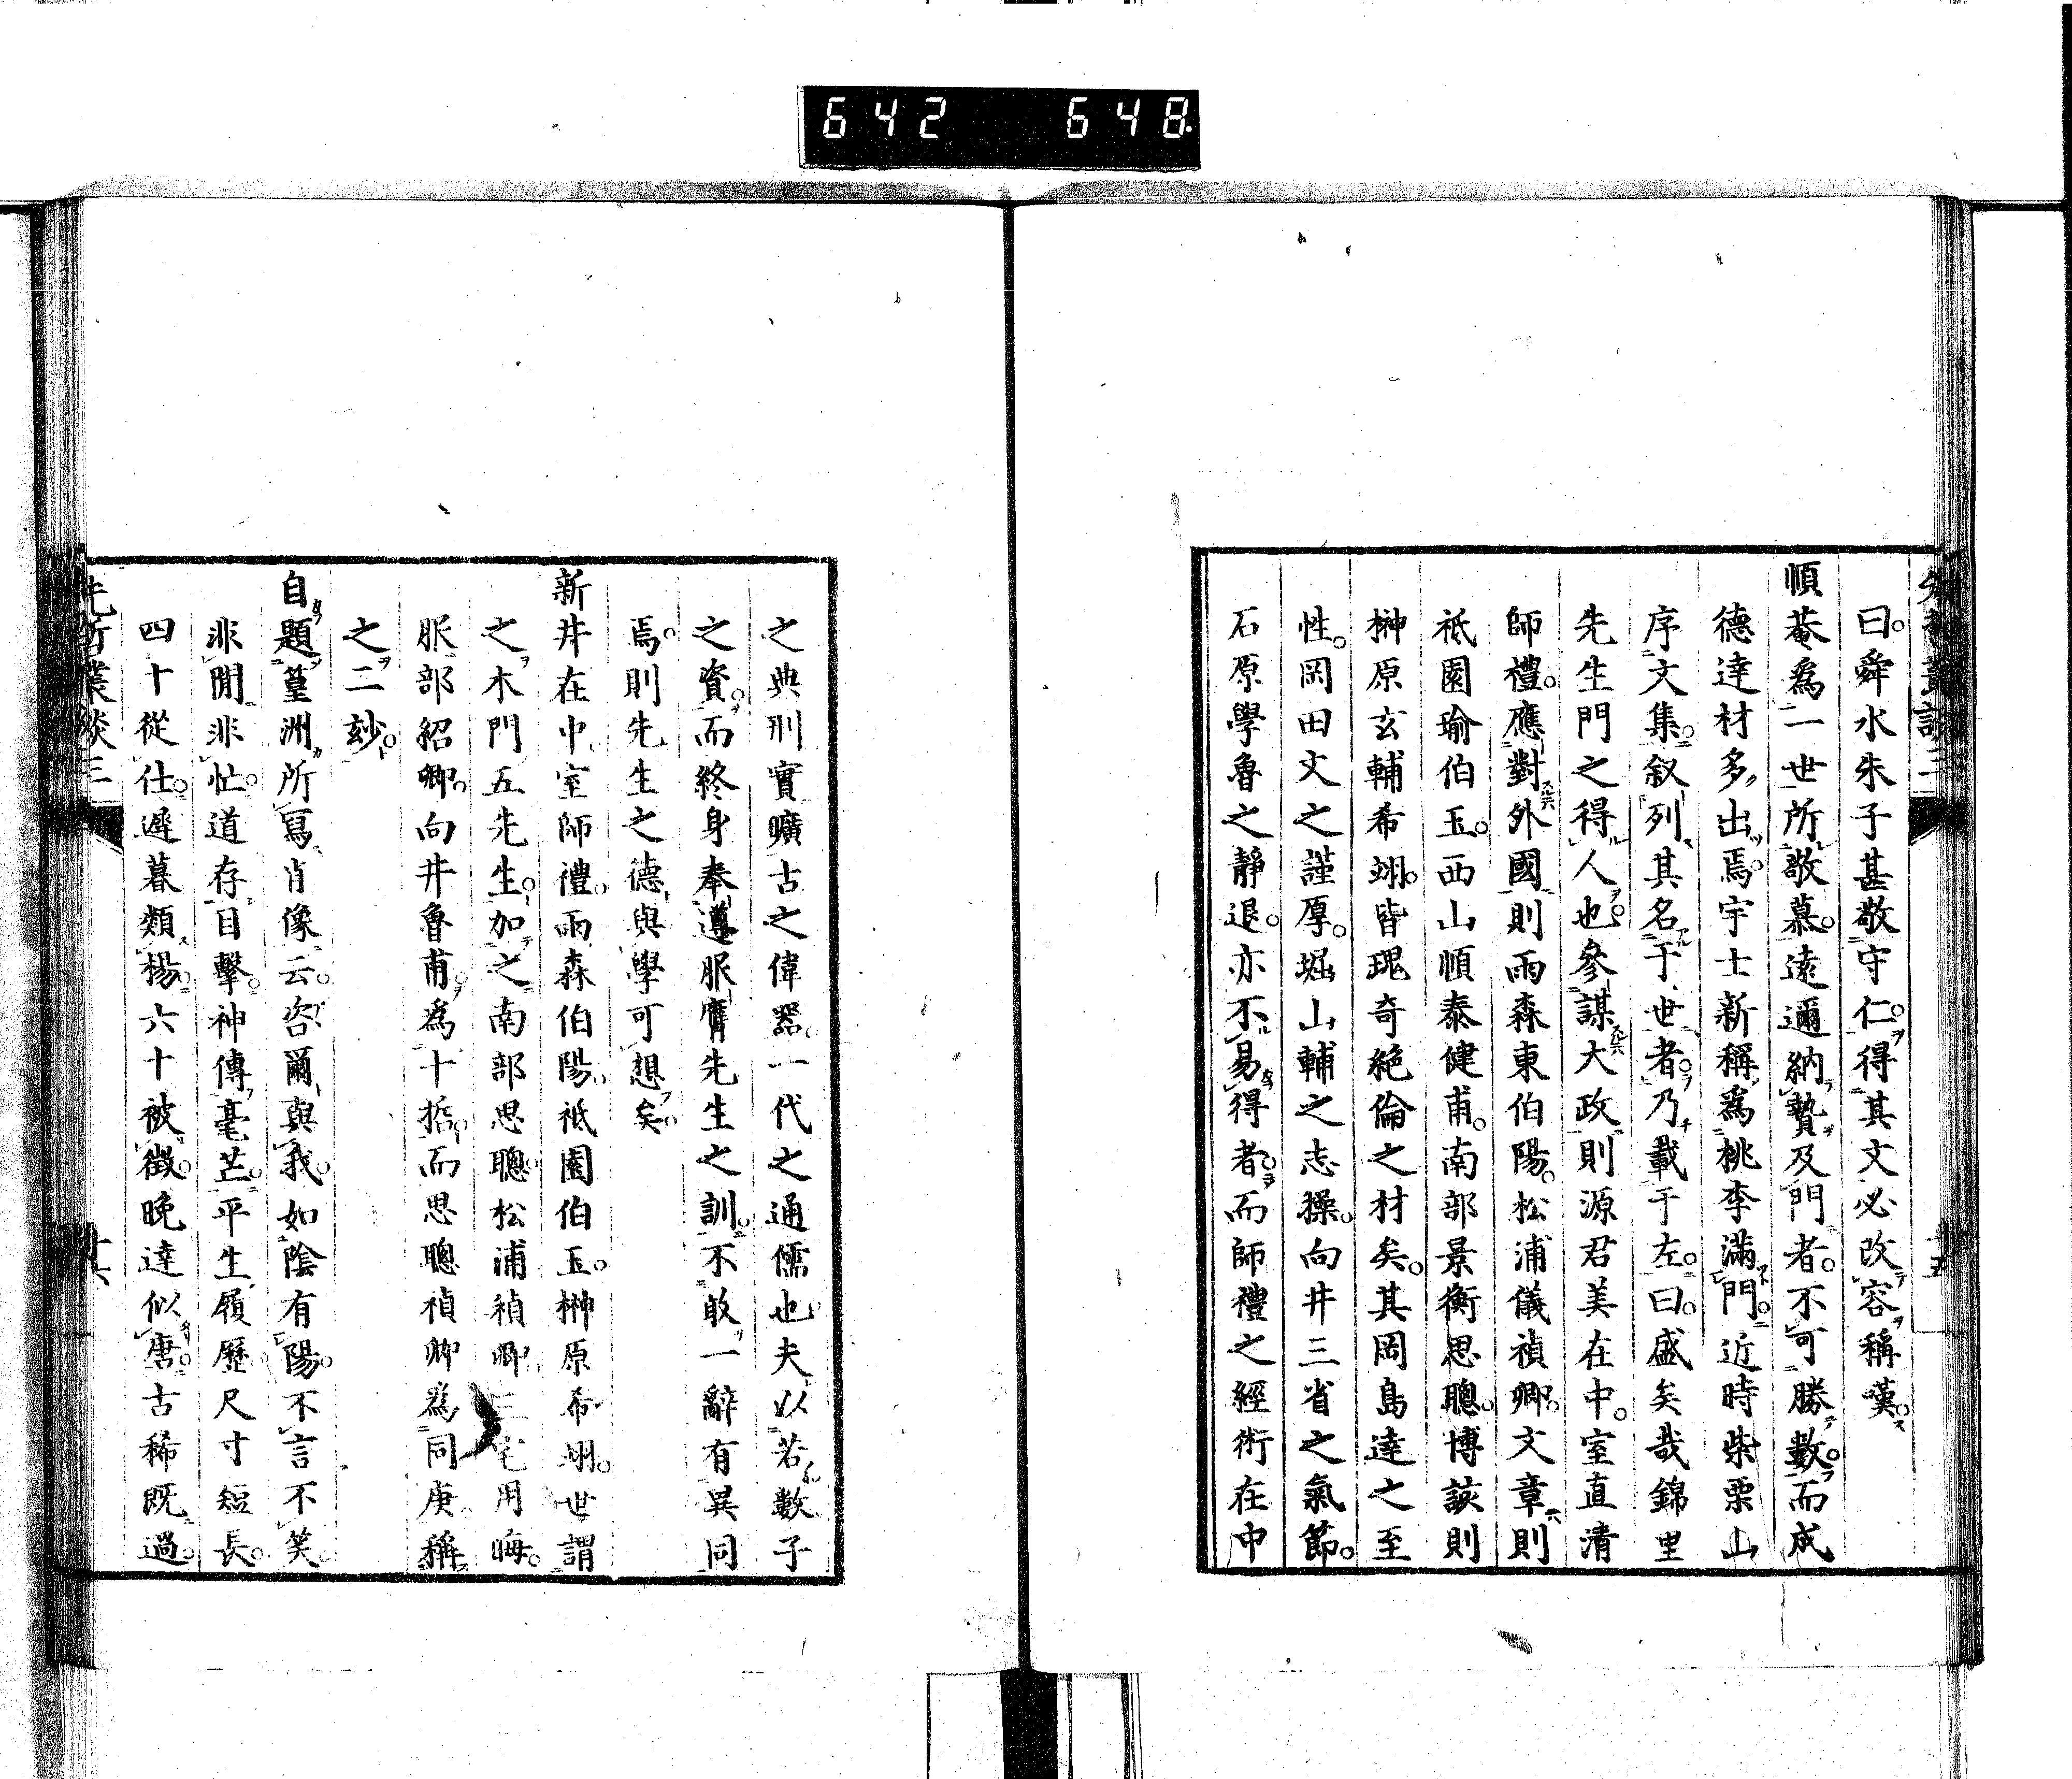 642 648
曰舜水朱子甚敬守仁得其文必改容稱嘆
順菴爲一世所敬慕遠邇納贄及門者不可勝數而成
德達材多出焉宇士新稱爲桃李滿門近時柴栗山
序文集叙列其名于世者乃載于左曰盛矣哉錦里
先生門之得人也參謀大政則源君美在中室直清
師禮應對外國則雨森東伯陽松浦儀禎卿文章則
祇園瑜伯玉西山順泰健甫南部景衡思聰博該則
榊原玄輔希翊皆瑰奇絶倫之材矣其岡島達之至
性岡田文之謹厚堀山輔之志操向井三省之氣節
石原學魯之靜退亦不易得者而師禮之經術在中
之典刑實曠古之偉器一代之通儒也夫以若數子
之資而終身奉遵服膺先生之訓不敢一辭有異同
焉則先生之德與學可想矣
新井在中室師禮雨森伯陽祇園伯玉榊原希翊世謂
之木門五先生加之南部思聰松浦禎卿三宅用晦
服部紹卿向井魯甫爲十哲而思聰禎卿爲同庚稱
之二玅
自題篁洲所寫肖像云咨爾與我如陰有陽不言不笑
非閒非忙道存目擊神傳毫芒平生履歷尺寸短長
四十從仕遲暮類楊六十被徵晩達似唐古稀既過
先哲叢談三
十六